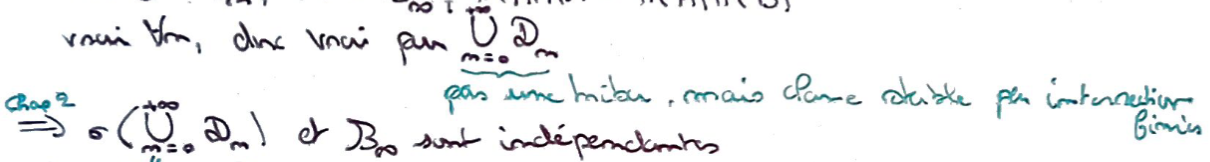 vrai ∀m, donc vrai par $\bigcup_{m=0}^{+\infty} \mathcal{D}_m$
pas une tribu, mais classe stable par intersection finies
Chap 2
⟹ σ($\bigcup_{m=0}^{+\infty} \mathcal{D}_m$) et $\mathcal{B}_\infty$ sont indépendantes